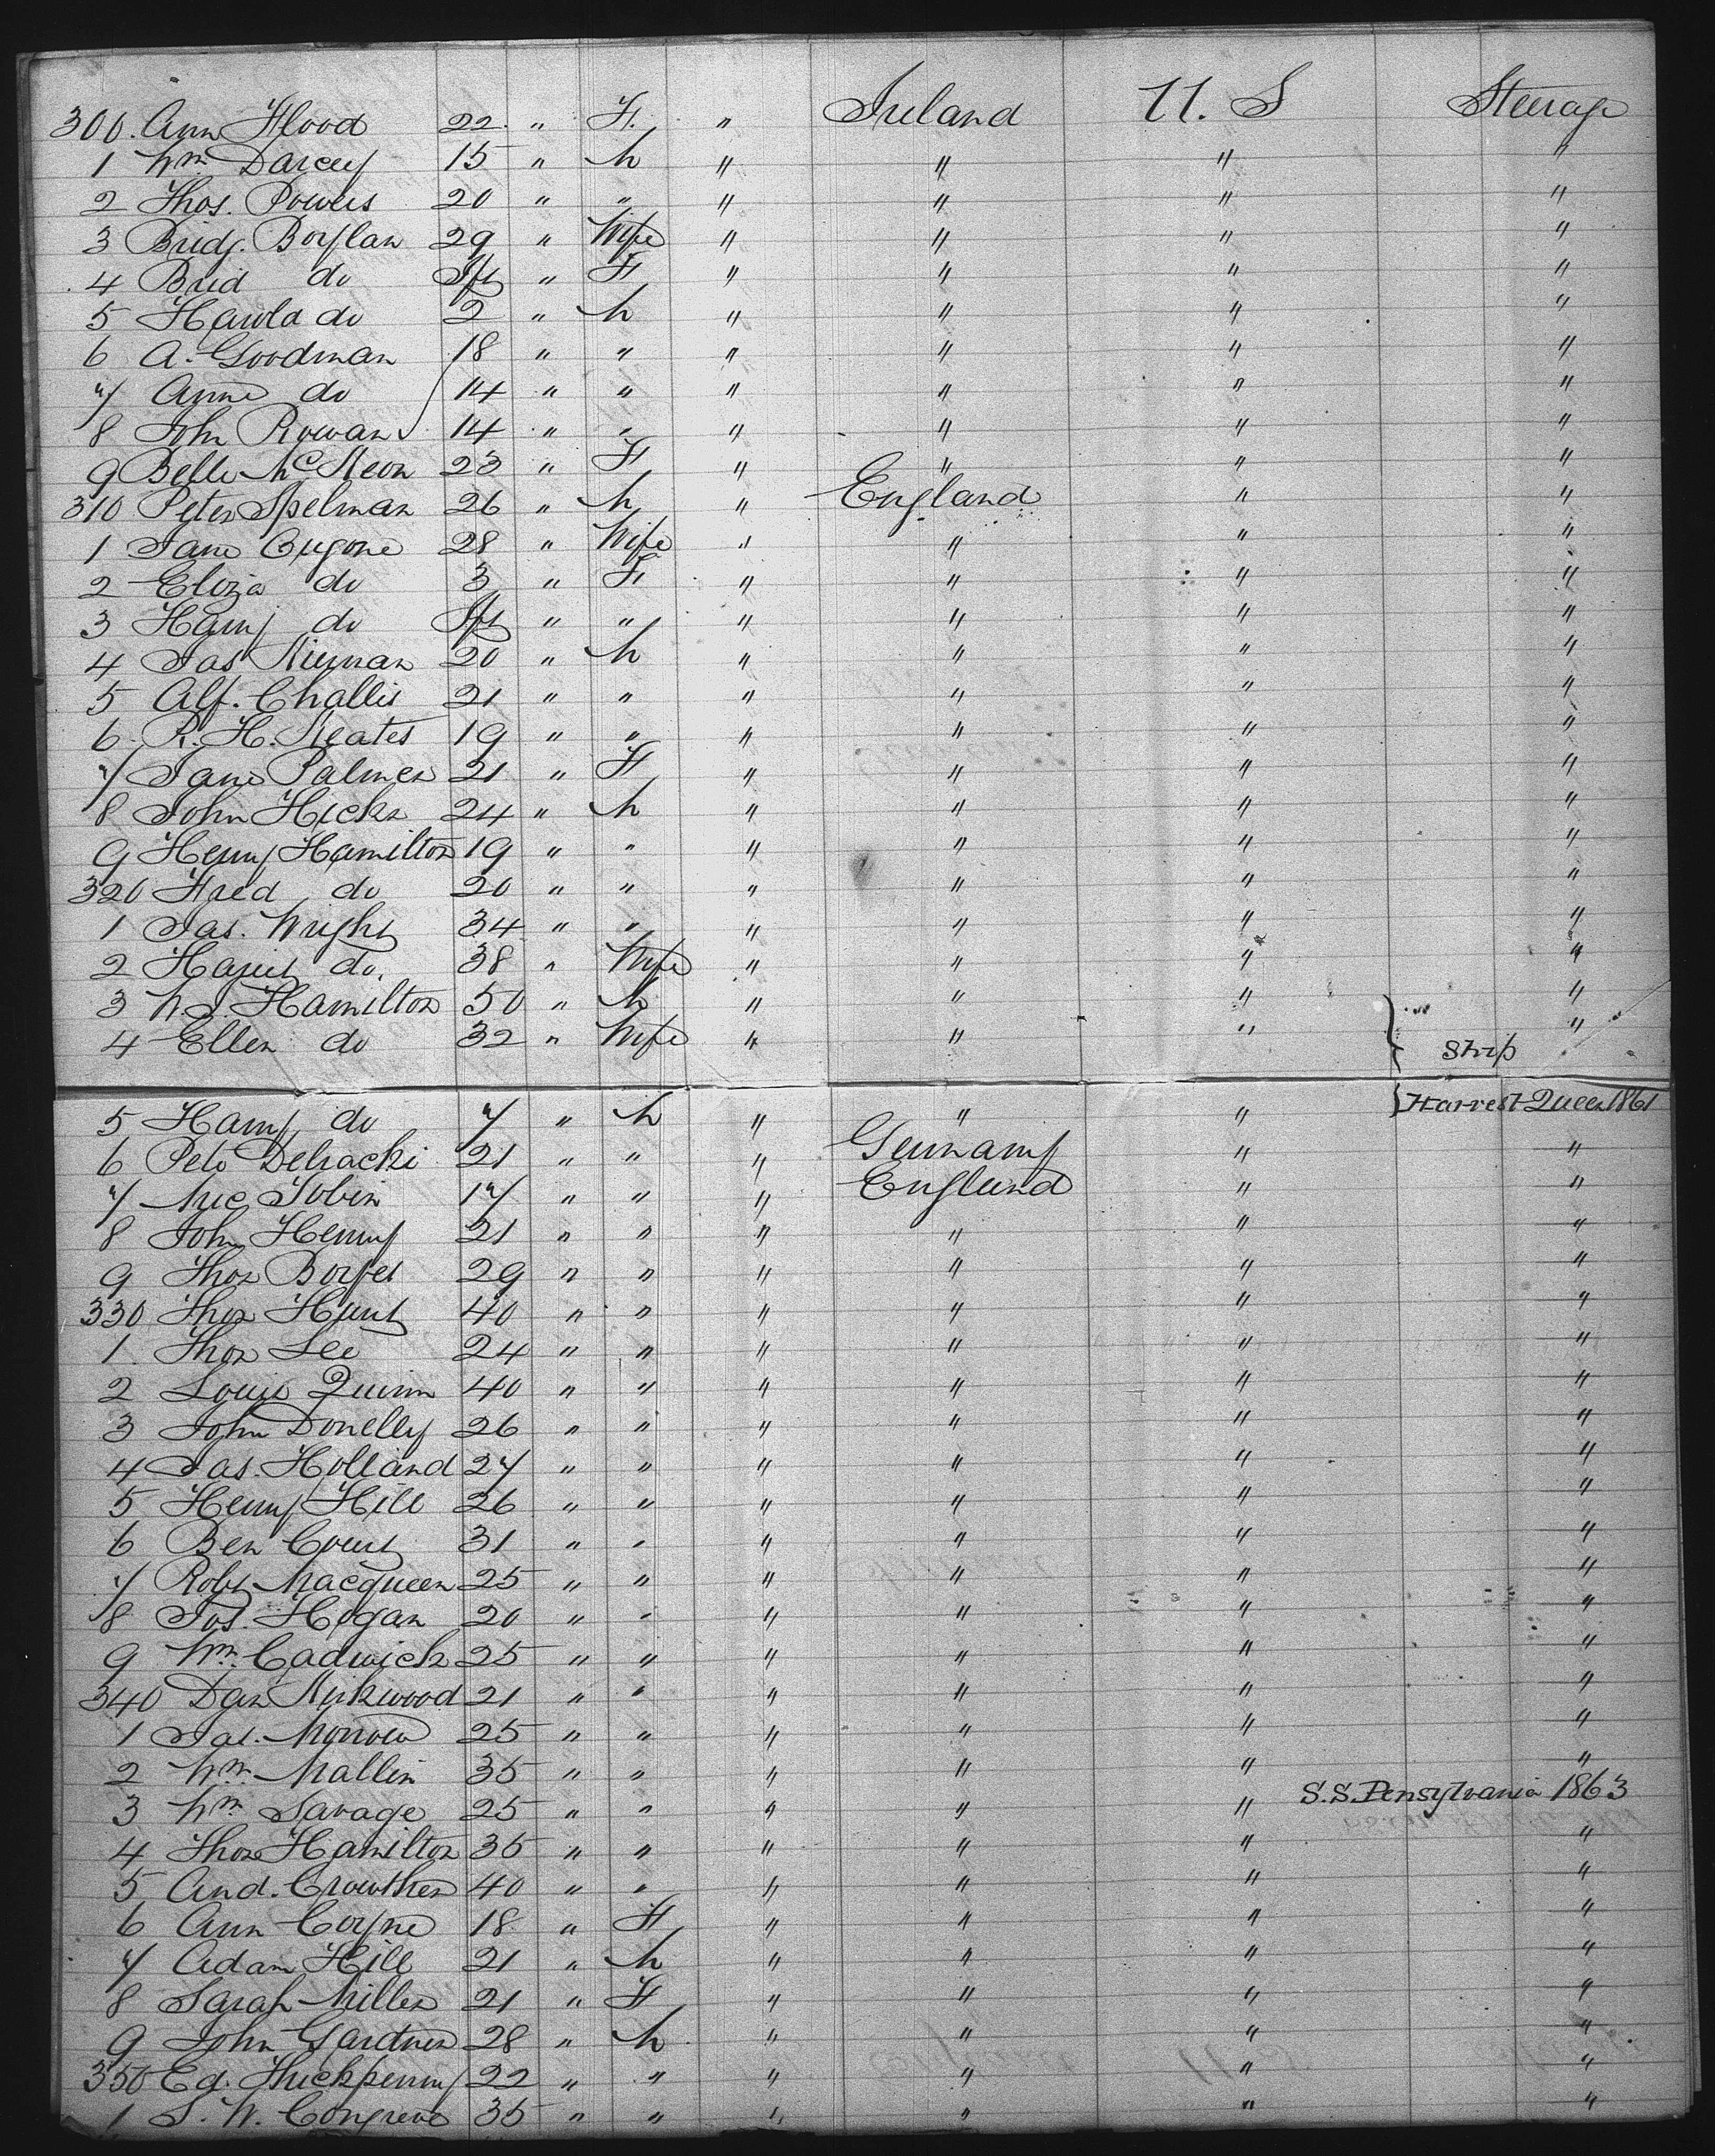 300. Ann Flood 22 " F. " Ireland U. S Steerage
1 Wm. Darcey 15 " M " " " "
2 Thos. Powers 20 " " " " " "
3 Bridg. Boylan 29 " Wife " " " "
4 Brid do Ift " F " " " "
5 Harold do 2 " M " " " "
6 A. Goodman 18 " " " " " "
7 Anne do 14 " " " " " "
8 John Rowan 14 " " " " " "
9 Belle McKeon 23 " F " " " "
310 Peter Spelman 26 " M " England " "
1 Jane 28 " Wife " " " "
2 Eliza do 3 " F " " " "
3 Harry do Ift " " " " " "
4 Jas Kiernan 20 " M " " " "
5 Alf. Challis 21 " " " " " "
6 R. H. Keates 19 " " " " " "
7 Jane Palmer 21 " F " " " "
8 John Hicks 24 " M " " " "
9 Henry Hamilton 19 " " " " " "
320 Fred do 20 " " " " " "
1 Jas. Wright 34 " " " " " "
2 Harriet do. 38 " Wife " " " "
3 W. J. Hamilton 50 " M " " " "
4 Ellen do 32 " Wife " " " "
Ship
Harvest Queen 1861
5 Harry do 7 " M " " "
6 Pete 21 " " " Germany " "
7 Mic Tobin 17 " " " England " "
8 John Henry 21 " " " " " "
9 Thos 29 " " " " " "
330 Thos Hunt 40 " " " " " "
1. Thos Lee 24 " " " " " "
2 Louis Quinn 40 " " " " " "
3 John Donelly 26 " " " " " "
4 Jas. Holland 27 " " " " " "
5 Henry Hill 26 " " " " " "
6 Ben Court 31 " " " " " "
7 Robt Macqueen 25 " " " " " "
8 Jos. Hogan 20 " " " " " "
9 Wm. Cadwick 25 " " " " " "
340 Dan Kirkwood 21 " " " " " "
1 Jas. Morrow 25 " " " " " "
2 Wm. Mallin 35 " " " " " "
3 Wm Savage 25 " " " " " S.S. Pensylvania 1863
4 Thos Hamilton 35 " " " " " "
5 And. Crowther 40 " " " " " "
6 Ann Coyne 18 " F " " " "
7 Adam Hill 21 " M " " " "
8 Sarah Miller 21 " F " " " "
9 John Gardner 28 " M " " " "
350 Ed. Huckpenny 22 " " " " " "
1 S. W. Congreve 35 " " " " " "